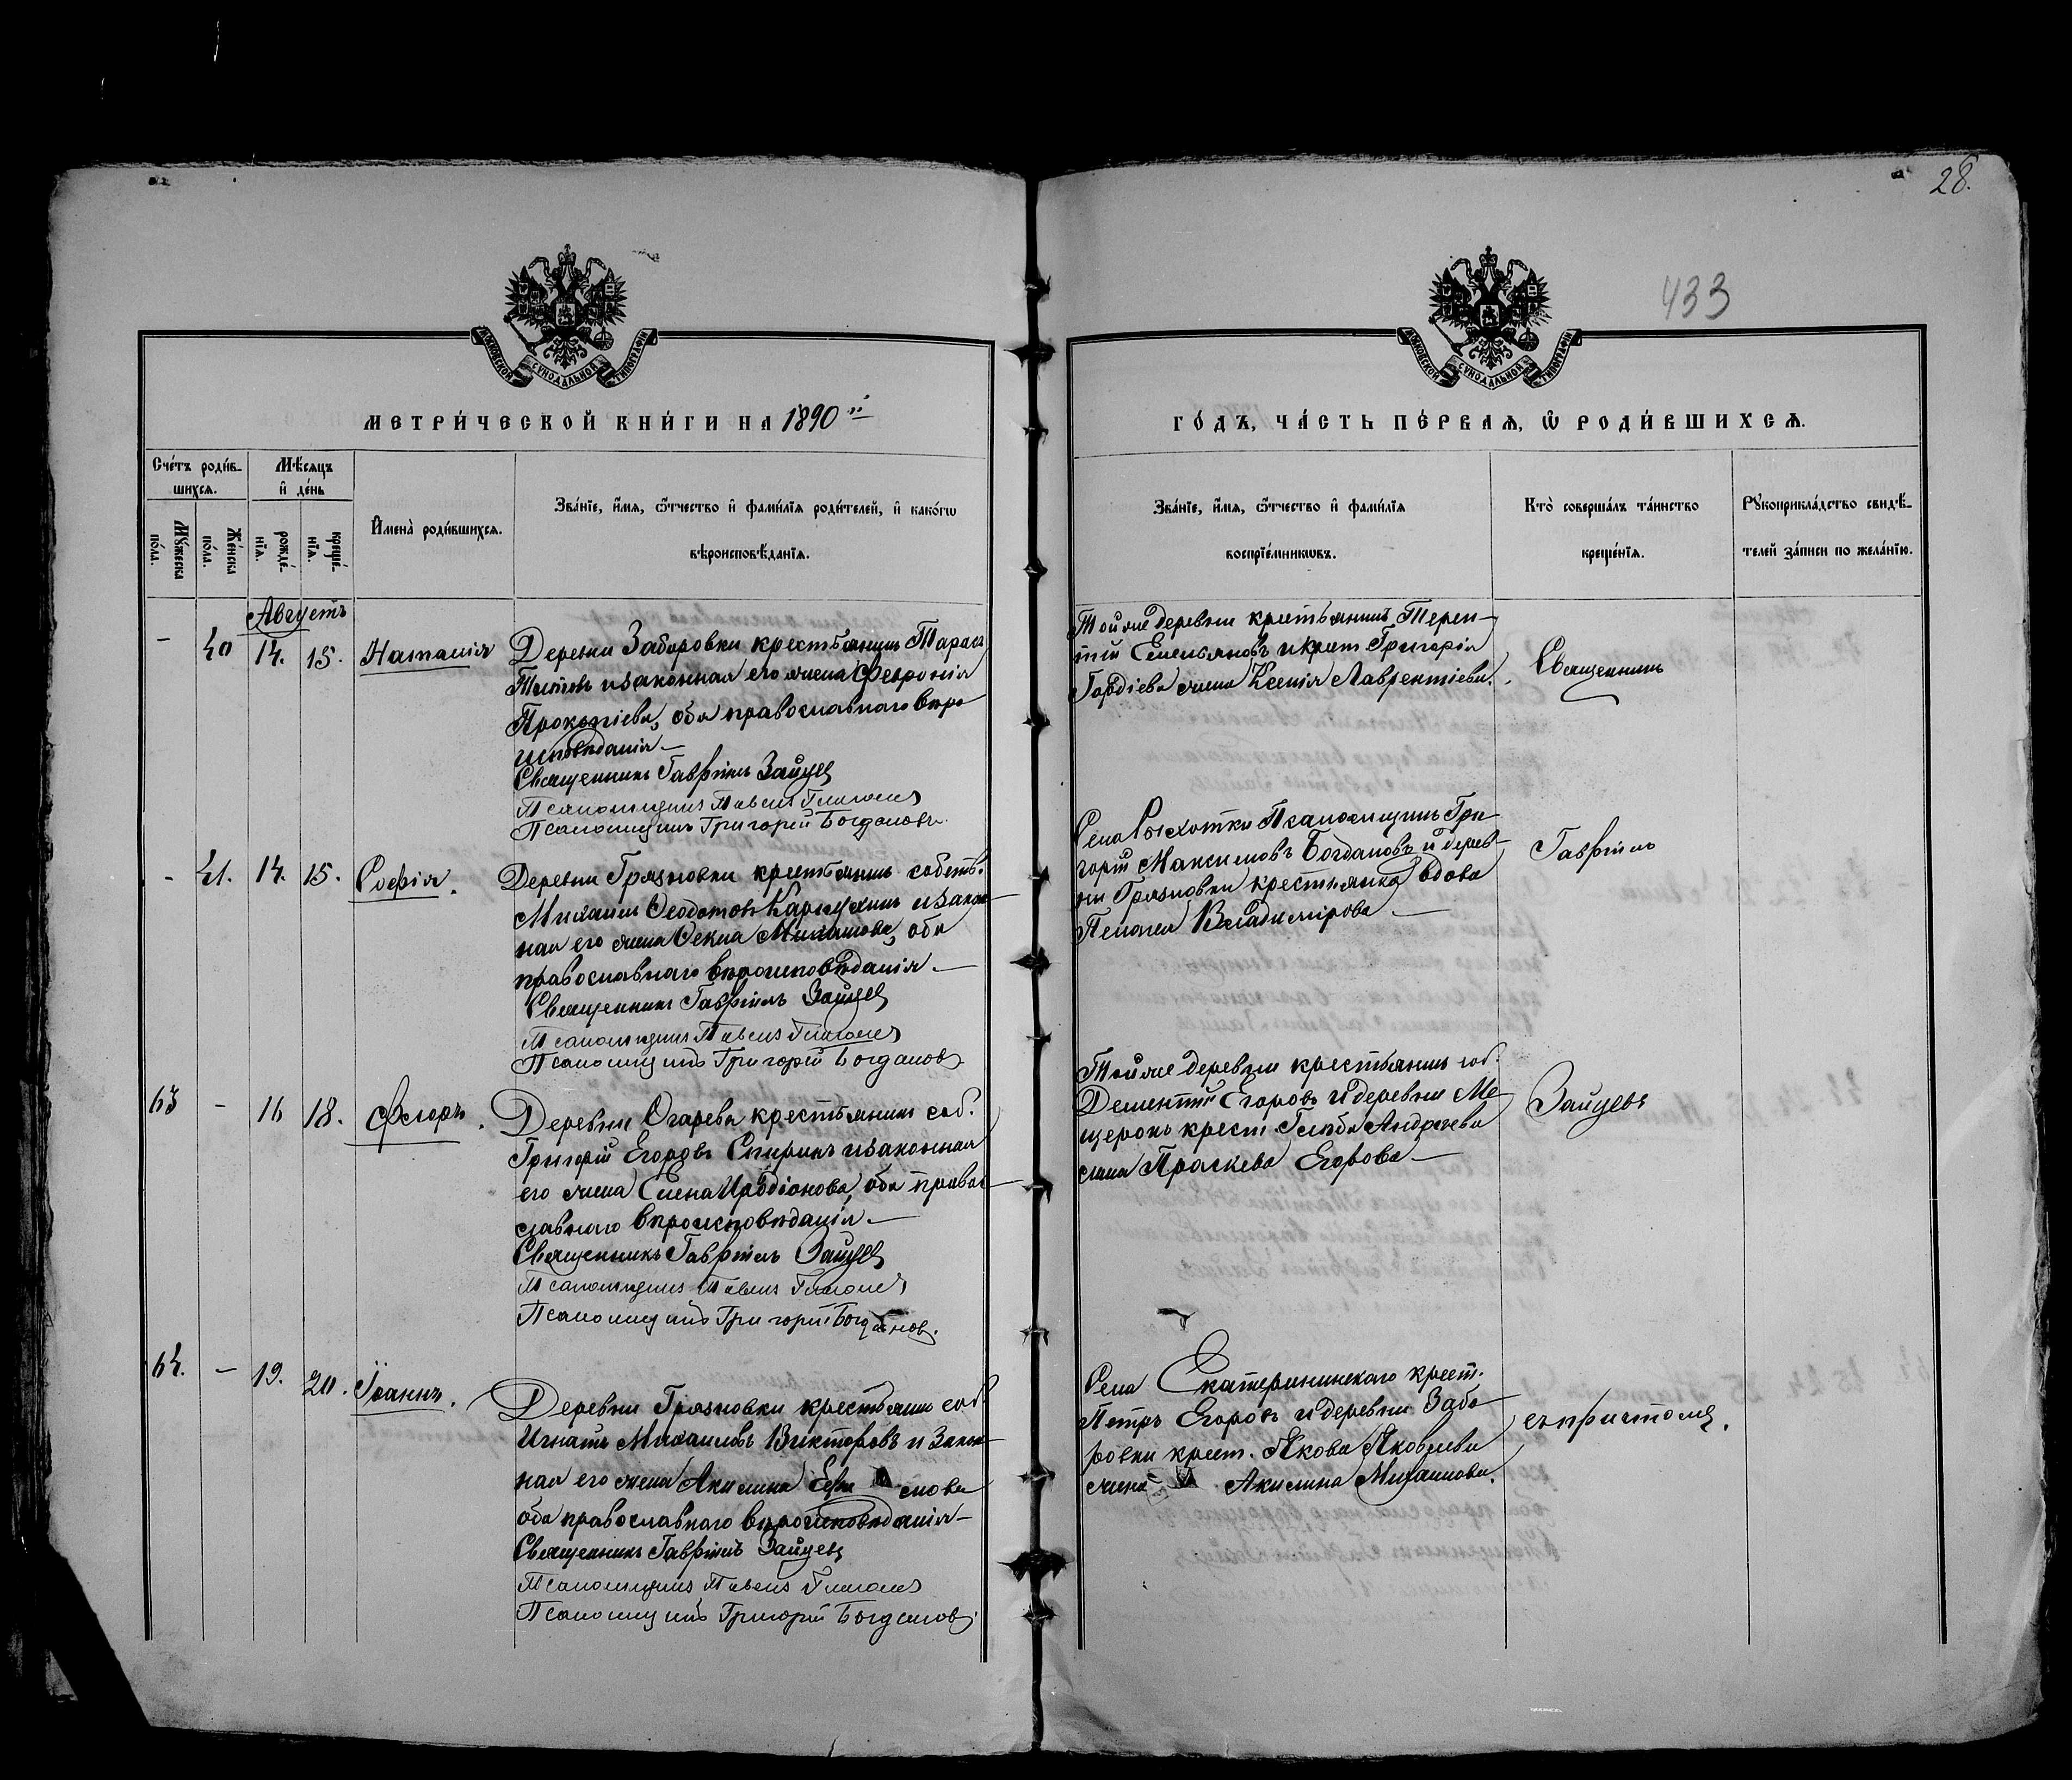 28.
433
МОСКОВСКОЙ СѴНОДАЛЬНОЙ ТИПОГРАФІИ
МОСКОВСКОЙ СѴНОДАЛЬНОЙ ТИПОГРАФІИ
МЕТРИ́ЧЕСКОЙ КНИ́ГИ НА 1890 й
ГО́ДЪ, ЧА́СТЬ ПЕ́РВАѦ, Ѿ РОДИ́ВШИХСѦ.
Сче́тъ роди́в-
шихсѧ.
Мѣ́сѧцъ
и҆ де́нь
Мꙋ́жеска
по́ла.
Же́нска
по́ла.
рожде́-
нїѧ.
креще́-
нїѧ.
И҆мена̀ роди́вшихсѧ.
Зва́нїе, и҆́мѧ, ѻ҆́тчество и҆ фами́лїѧ роди́телей, и҆ како́гѡ
вѣроисповѣ́данїѧ.
Зва́нїе, и҆́мѧ, ѻ҆́тчество и҆ фами́лїѧ
воспрїе́мникѡвъ.
Кто̀ соверша́лъ та́инство
креще́нїѧ.
Рꙋкоприкла́дство свидѣ́-
телей за́писи по жела́нїю.
Августъ
- 40 14. 15. Наталія
Деревни Заборовки крестьянинъ Тарасъ
Титовъ и законная его жена Феврония
Прокопіева, оба православнаго вѣро
исповѣданія —
Священникъ Гавріилъ Зайцев
Псаломщикъ Павелъ
Псаломщикъ Григорій Богдановъ.
Той же деревни крестьянинъ Терен-
тій Емельяновъ и крест. Григорія
Гордіева жена Ксенія Лаврентіева.
Священникъ
- 41. 14. 15. Софія.
Деревни Грязновки крестьянинъ собств.
Михаилъ Ѳеодотовъ и закон-
ная его жена Ѳекла Михайлова, оба
православнаго вѣроисповѣданія. —
Священникъ Гавріилъ Зайцев
Псаломщикъ Павелъ
Псаломщикъ Григорій Богданов
Села Псаломщикъ Гри-
горій Максимовъ Богдановъ и дерев-
ни Грязновки крестьянка вдова
Пелагея Владимірова —
Гавріилъ
63 - 16 18. Ѳедоръ.
Деревни Огарева крестьянинъ соб.
Григорій Егоровъ Спиринъ и законная
его жена Елена Иродіонова, оба право-
славнаго вѣроисповѣданія. —
Священникъ Гавріилъ Зайцев
Псаломщикъ Павелъ
Псаломщикъ Григорій Богданов.
Той же деревни крестьянинъ соб.
Дементій Егоровъ и деревни Ме-
щерокъ крест. Глѣба Андреева
жена Праскева Егорова —
Зайцевъ
64. - 19. 20. Іоаннъ.
Деревни Грязновки крестьянинъ соб.
Игнатъ Михаиловъ Викторовъ и закон-
ная его жена Акилина
оба православнаго вѣроисповѣданія —
Священникъ Гавріилъ Зайцевъ
Псаломщикъ Павелъ
Псаломщикъ Григорій Богданов.
Села Екатерининскаго крест.
Петръ Егоровъ и деревни Забо-
ровки крест. Якова Яковлева
жена Акилина Михаилова.
съ причтомъ.